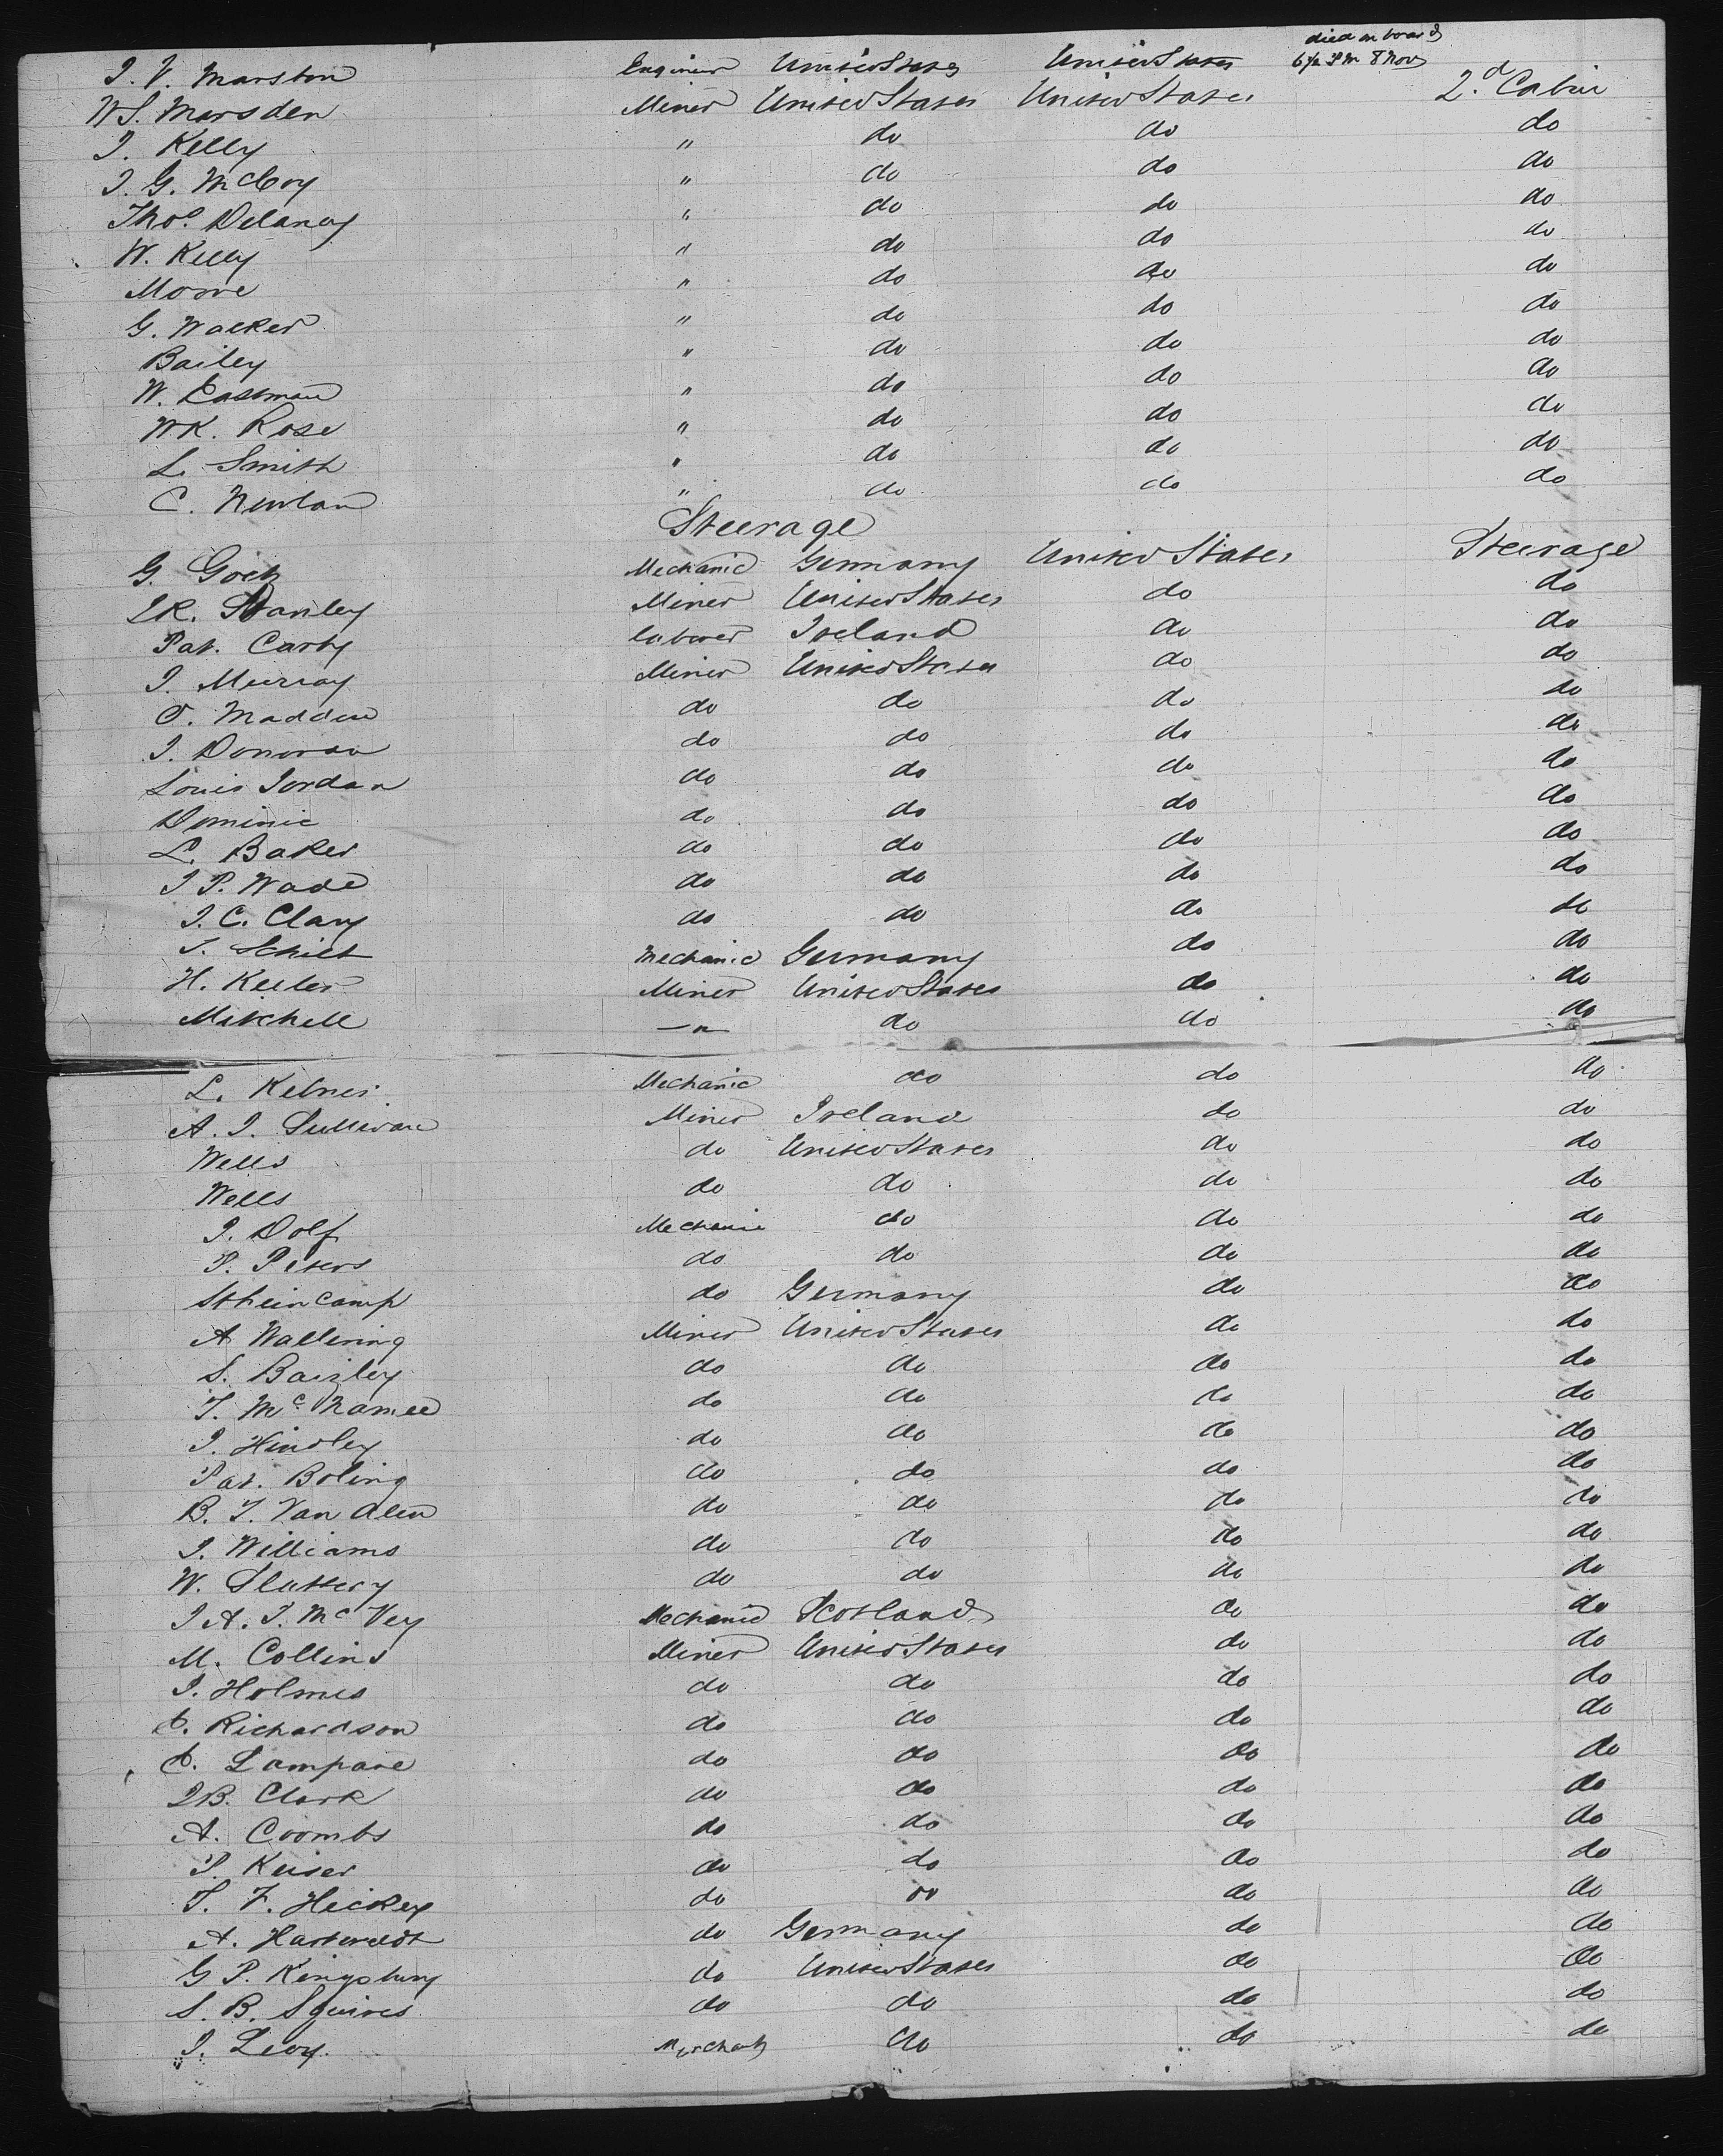 J. V. Marston Engineer United States United States died on board 6½ PM 8 Nov
W S. Marsden Miner United States United States 2.d Cabin
J. Kelly " do do do
J. G. McCoy " do do do
Thos. Delaney " do do do
W. Kelly " do do do
Moore " do do do
G. Walker " do do do
Bailey " do do do
W. Eastman " do do do
W K. Rose " do do do
L. Smith " do do do
C. Newlan " do do do
Steerage
G. Goetz Mechanic Germany United States Steerage
J R. Stanley Miner United States do do
Pat. Carty laborer Ireland do do
J. Murray Miner United States do do
O. Madden do do do do
J. Donovan do do do do
Louis Jordan do do do do
Dominic do do do do
L. Baker do do do do
J P. Wade do do do do
J. C. Clary do do do do
J. Schilt Mechanic Germany do do
H. Keeler Miner United States do do
Mitchell — " — do do do
L. Kelner Mechanic do do do
A. J. Sullivan Miner Ireland do do
Wells do United States do do
Wells do do do do
J. Dolf Mechanic do do do
P. Peters do do do do
Stheincamp do Germany do do
A Wallering Miner United States do do
S. Baizley do do do do
T. Mc Namee do do do do
J. Hindley do do do do
Pat. Boling do do do do
B. T. Van Alen do do do do
J. Williams do do do do
W. Slattery do do do do
J A. J. Mc Vey Mechanic Scotland do do
M. Collins Miner United States do do
J. Holmes do do do do
C. Richardson do do do do
C. Lampare do do do do
J B. Clark do do do do
A. Coombs do do do do
P. Keiser do do do do
T. F. Hickey do do do do
A. Hartwedt do Germany do do
G P. Kingsbury do United States do do
S. B. Squires do do do do
J. Levy. Merchant do do do